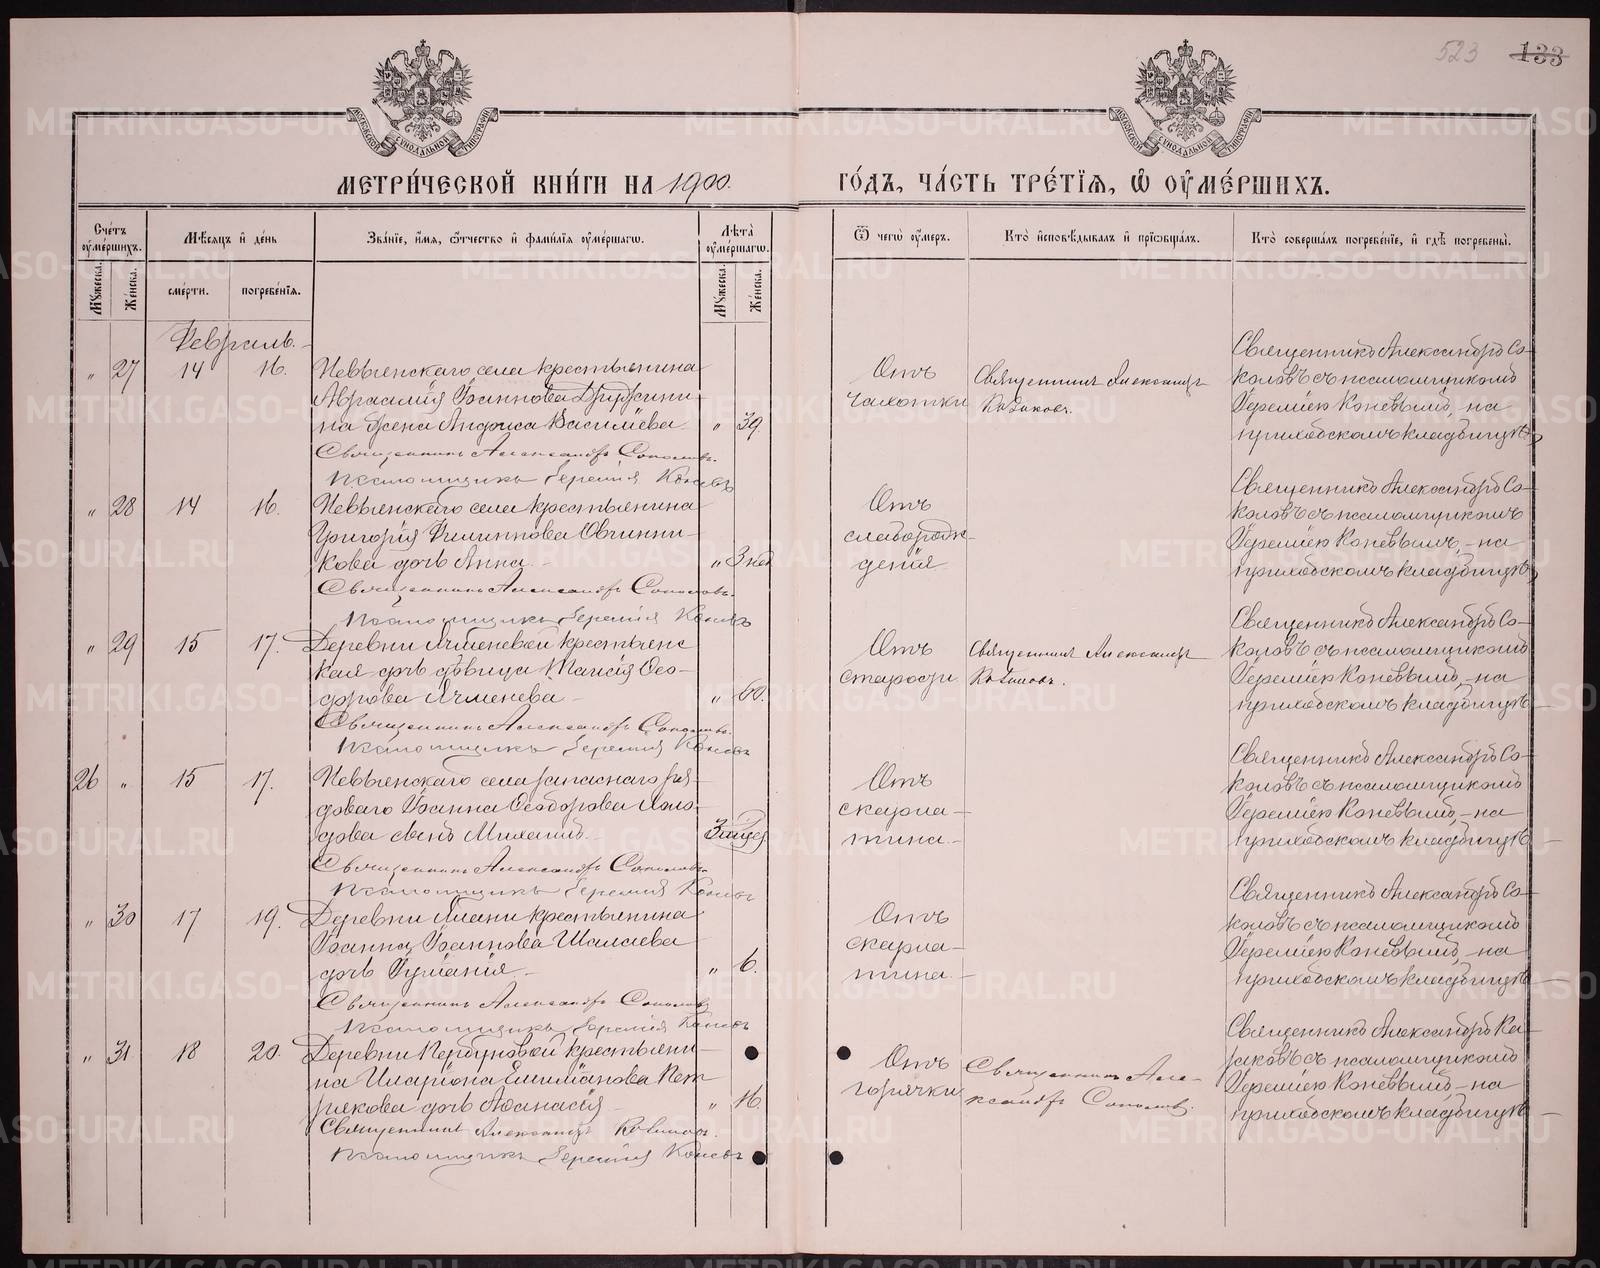 523 133
МЕТРИ́ЧЕСКОЙ КНИ́ГИ НА 1900.
ГО́ДЪ, ЧА́СТЬ ТРЕ́ТІѦ, Ѿ ОУМЕ́РШИХЪ.
Сче́тъ оумéршихъ.
Мꙋ́жеска.
Же́нска.
Мѣ́сяцъ и де́нь
сме́рти.
погребе́нїѧ.
Зва́нїе, и́мѧ, ѻ́тчество и фамѝлїѧ оумéршагѡ.
Лѣ́та оумéршагѡ.
Мꙋ́жеска.
Же́нска.
Ѿ чегѡ̀ оу́меръ.
Кто̀ и҆сповѣ́дывалъ и҆ прїѡбща́лъ.
Кто̀ соверша́лъ погребе́нїе, и҆ гдѣ̀ погребены̀.
Февраль.
" 27 14 16. Невьянскаго села крестьянина
Авраамія Іоаннова Дружини-
на жена Андриса Васильева " 39.
Священникъ Александръ Соколовъ.
Псаломщикъ Іеремія Коневъ
Отъ
чахотки
Священникъ Александръ
Казаковъ.
Священникъ Александръ Со-
коловъ съ псаломщикомъ
Іереміею Коневымъ, на
приходскомъ кладбищѣ
" 28 14 16. Невьянскаго села крестьянина
Григорія Филиппова Овчинни-
кова дочь Анна " 3 нед
Священникъ Александръ Соколовъ.
Псаломщикъ Іеремія Коневъ
Отъ
слаборож-
денія
Священникъ Александръ Со-
коловъ съ псаломщикомъ
Іереміею Коневымъ, на
приходскомъ кладбищѣ
" 29 15 17. Деревни Ячменевой крестьянс
кая дочь дѣвица Таисія Ѳео-
дорова Ячменева " 60.
Священникъ Александръ Соколовъ.
Псаломщикъ Іеремія Коневъ
Отъ
старости
Священникъ Александръ
Казаковъ.
Священникъ Александръ Со-
коловъ съ псаломщикомъ
Іереміею Коневымъ, на
приходскомъ кладбищѣ
26 " 15 17. Невьянскаго села запаснаго ря-
доваго Іоанна Ѳеодорова
сынъ Михаилъ.
Священникъ Александръ Соколовъ
Псаломщикъ Іеремія Коневъ
Отъ
скарла-
тина.
Священникъ Александръ Со-
коловъ съ псаломщикомъ
Іереміею Коневымъ, на
приходскомъ кладбищѣ
" 30 17 19. Деревни Ялани крестьянина
Іоанна Іоаннова Шалаева
дочь " 6.
Священникъ Александръ Соколовъ
Псаломщикъ Іеремія Коневъ
Отъ
скарла-
тина.
Священникъ Александръ Со-
коловъ съ псаломщикомъ
Іереміею Коневымъ, на
приходскомъ кладбищѣ
" 31 18 20. Деревни крестьяни-
на Иларіона Емиліанова Пет
рякова дочь Аѳанасія " 16.
Священникъ Александръ Казаковъ.
Псаломщикъ Іеремія Коневъ
Отъ
горячки
Священникъ Але-
ксандръ Соколовъ.
Священникъ Александръ Ка-
заковъ съ псаломщикомъ
Іереміею Коневымъ, на
приходскомъ кладбищѣ
METRIKI.GASO-URAL.RU